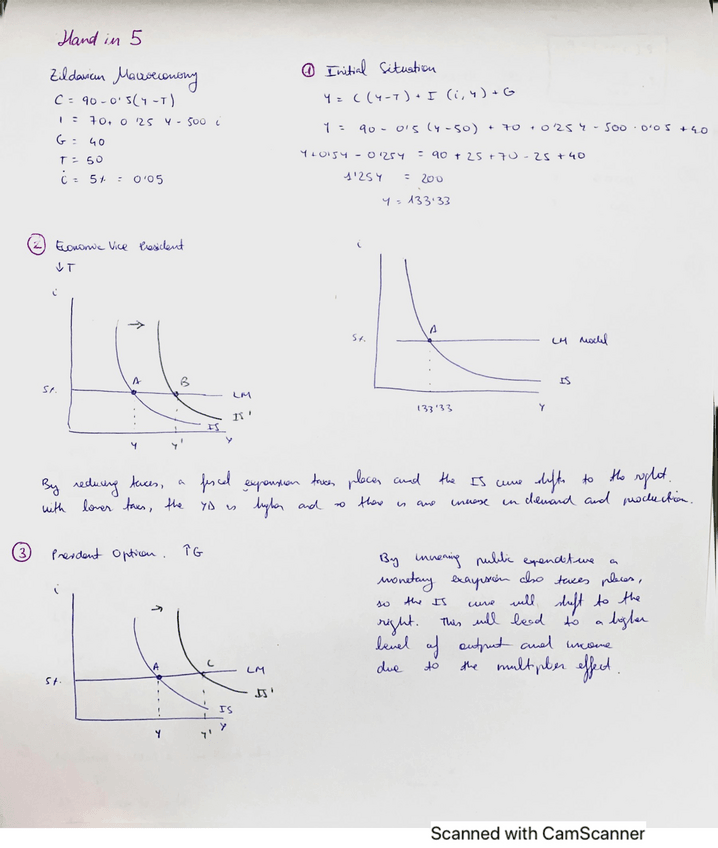 Hand in 5
Zildavian Macroeconomy
C = 90 - 0'5(Y-T)
I = 70 + 0'25 Y - 500 i
G = 40
T = 50
i = 5% = 0'05
1 Initial Situation
Y = C (Y-T) + I (i, Y) + G
Y = 90 - 0'5 (Y-50) + 70 + 0'25 Y - 500 · 0'05 + 40
Y + 0'5Y - 0'25Y = 90 + 25 + 70 - 25 + 40
1'25Y = 200
Y = 133'33
2 Economic Vice President
↓T
i
→
A
B
5%
LM
IS'
IS
Y
Y'
Y
i
A
5%
LM Model
IS
133'33
Y
By reducing taxes, a fiscal expansion takes places and the IS curve shifts to the right.
with lower taxes, the YD is higher and so there is an increase in demand and production.
3 President Option. ↑G
i
→
A
C
5%
LM
IS'
IS
Y
Y'
Y
By increasing public expenditure a
monetary expansion also takes places,
so the IS curve will shift to the
right. This will lead to a higher
level of output and income
due to the multiplier effect.
Scanned with CamScanner